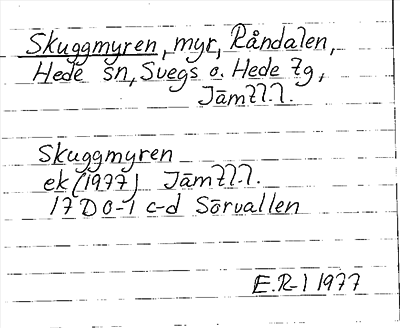 Skuggmyren, myr, Råndalen,
Hede sn, Svegs o. Hede tg,
Jämtl.l.
Skuggmyren
ek (1977) Jämtl.l.
17 D 0-1 c-d Sörvallen
E.R-l 1977